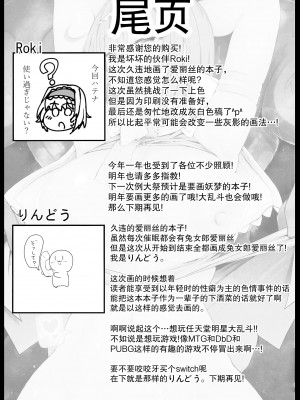 尾页
Roki
今回ハテナ
使い過ぎじゃない？
非常感谢您的购买!
我是坏坏的伙伴Roki!
这次久违地画了爱丽丝的本子,
不知道您感觉怎么样呢?
这次虽然挑战了一下上色
但是因为印刷没有准备好,
最后还是匆忙地改成灰白色稿了^p^
所以比起平常可能会改变一些灰影的画法…!
今年一年也受到了各位不少照顾!
明年也请多多指教!
下一次例大祭预计是要画妖梦的本子!
明年要画更多的画了!大乱斗也会做哦!
那么下期再见!
りんどう
久违的爱丽丝的本子!
虽然每次催眠都会有兔女郎爱丽丝!
但是这次从开始到结束全都画成兔女郎爱丽丝了!
我是りんどう。
这次画的时候想着
读者能享受到以年轻时的性癖为主的色情事件的话
能把这本本子作为一辈子的下酒菜的话就好了啊
就是以这样的感觉去画的。
啊啊说起这个…想玩任天堂明星大乱斗!!
不如说是想玩游戏!像MTG和DbD和
PUBG这样的有趣的游戏不停冒出来啊…!
要不要咬咬牙买个switch呢
在下就是那样的りんどう。下期再见!